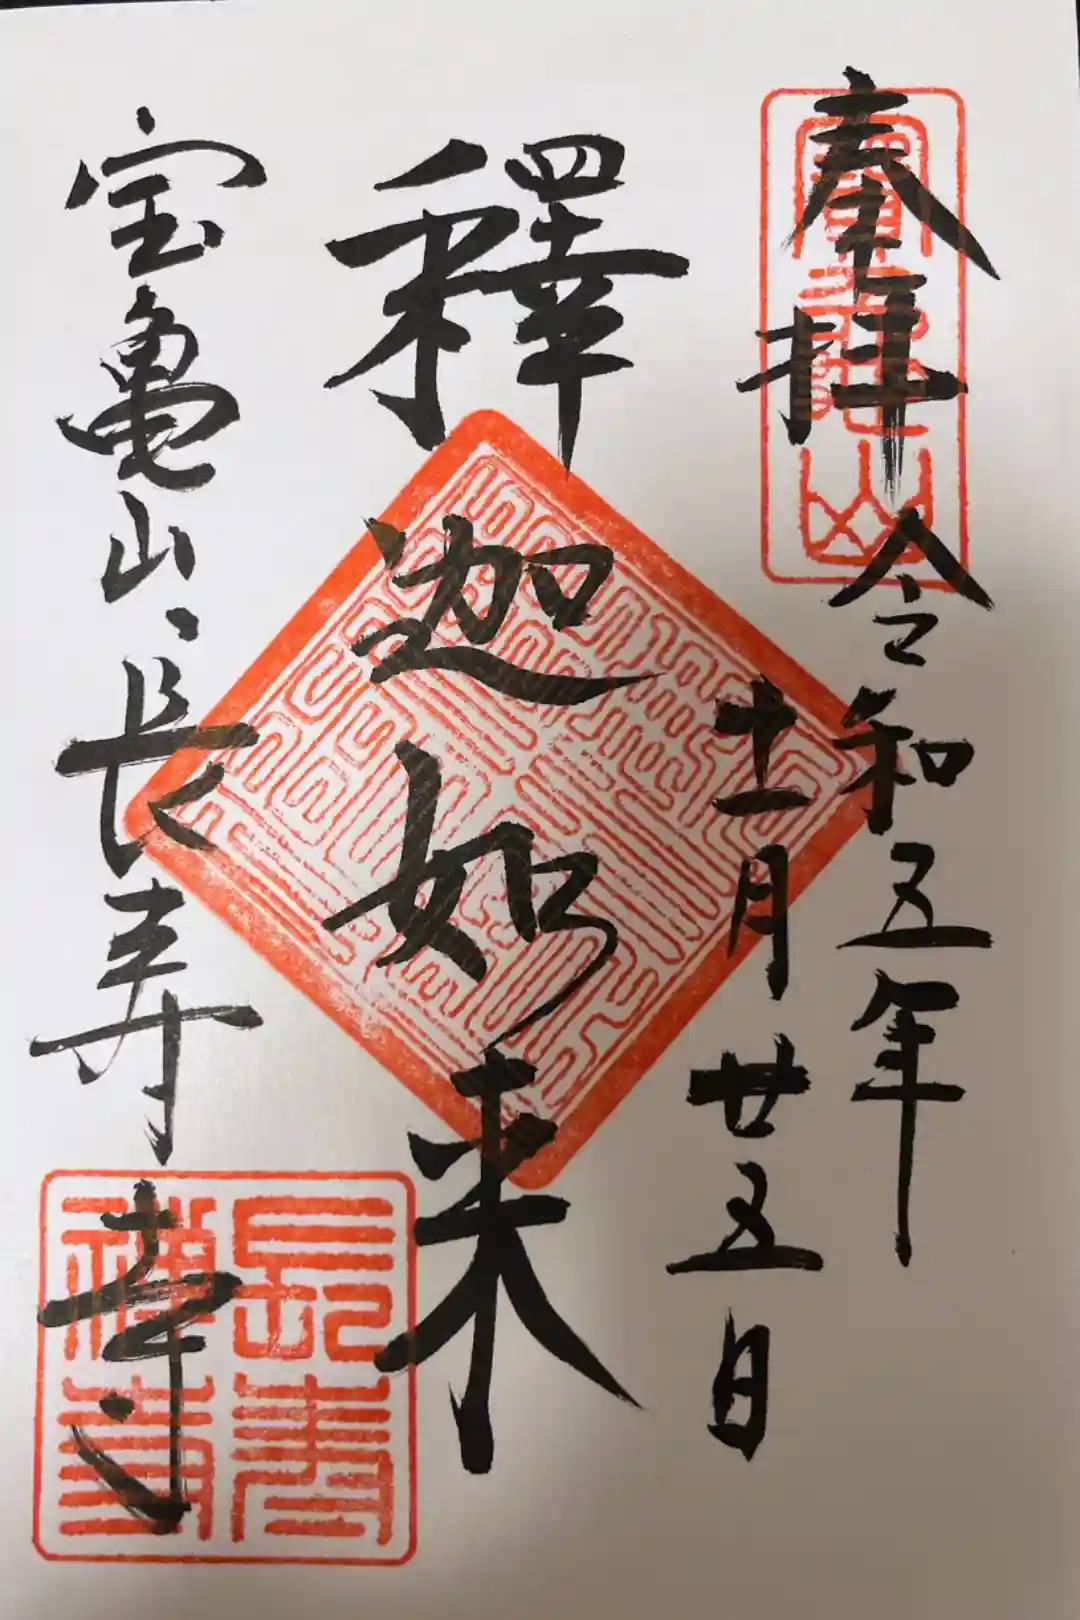 奉拝
令和五年
十一月廿五日
釋迦如来
宝亀山、長寿寺
長寿
禅寺